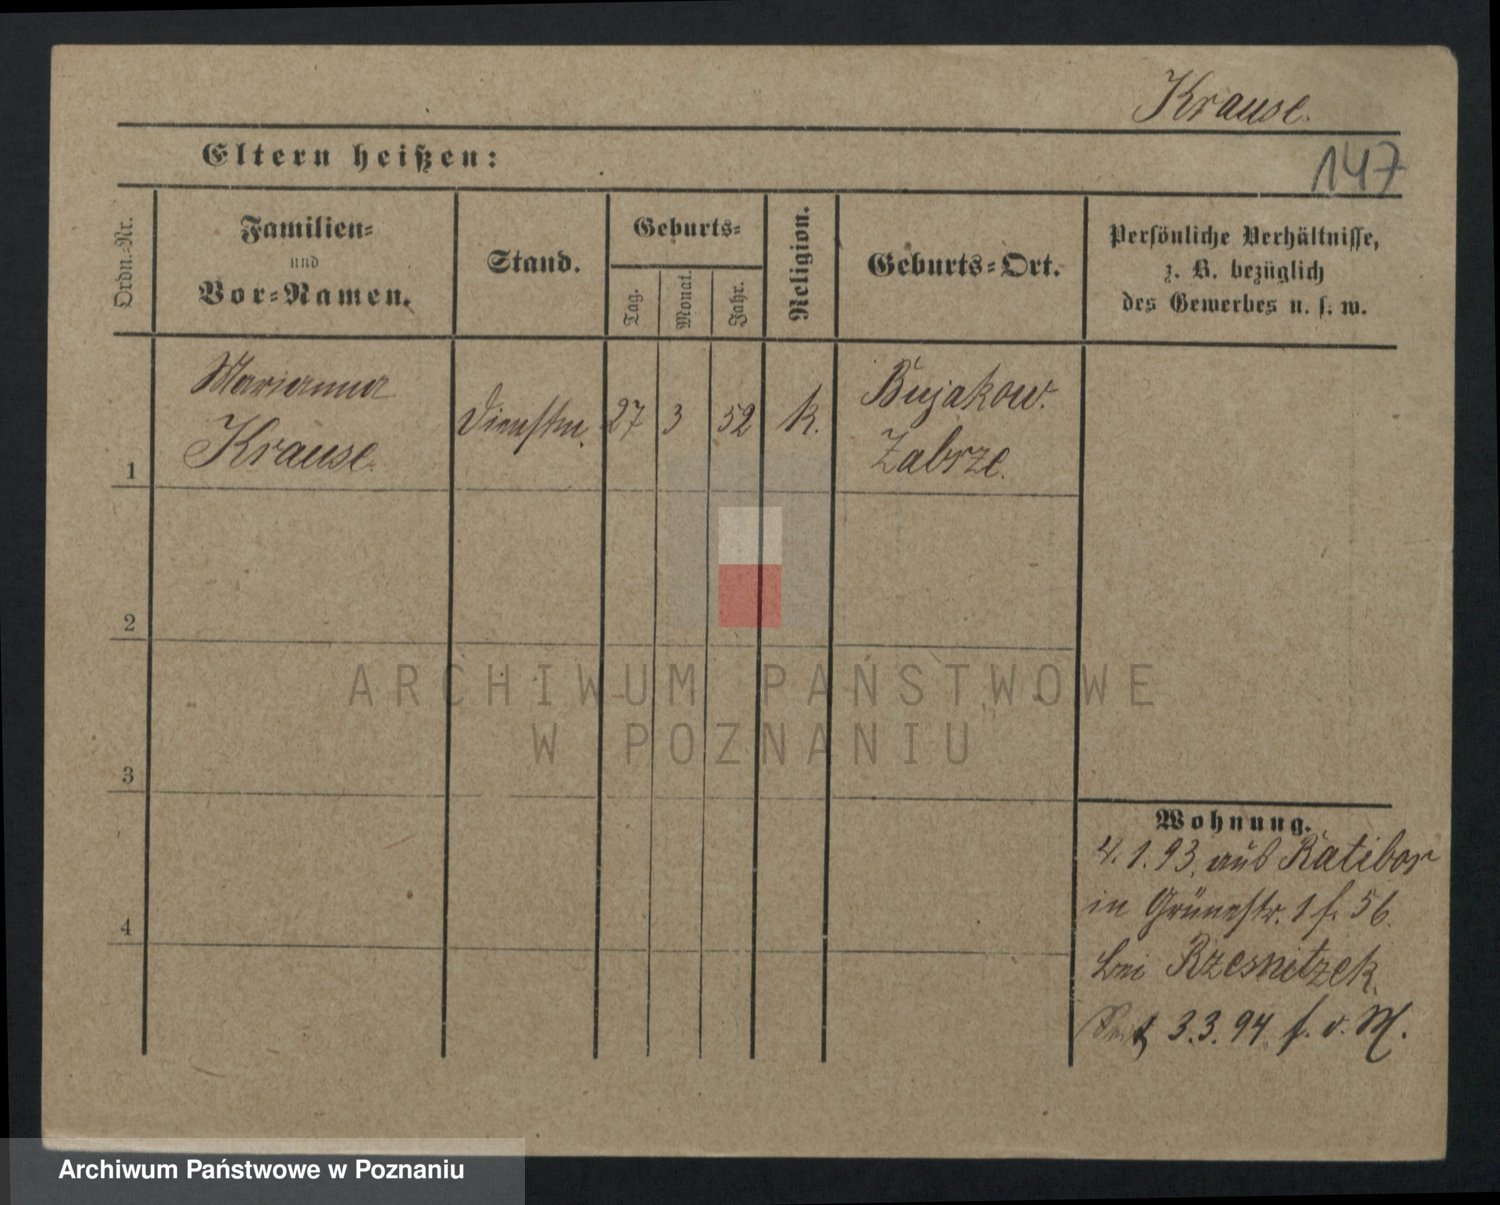 Krause.
Eltern heißen:
147
Ordn.-Nr.
Familien-
und
Vor-Namen.
Stand.
Geburts-
Tag.
Monat.
Jahr.
Religion.
Geburts-Ort.
Persönliche Verhältnisse,
z. B. bezüglich
des Gewerbes u. s. w.
1
Marianna
Krause.
Dienstm.
27
3
52
k.
Bujakow.
Zabrze.
2
3
4
Wohnung.
4.1.93. aus Ratibor
in Grünestr. 1 f. 56.
bei Rzesnitzek.
3.3.94 f. v. M.
ARCHIWUM PAŃSTWOWE
W POZNANIU
Archiwum Państwowe w Poznaniu